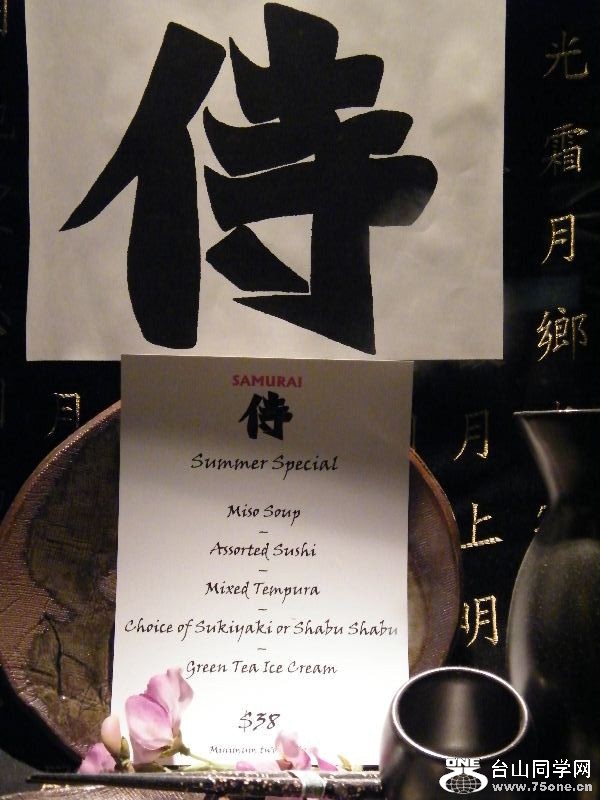 侍
光
霜
月
鄉
月
月
上
明
SAMURAI
侍
Summer Special
Miso Soup
~
Assorted Sushi
~
Mixed Tempura
~
Choice of Sukiyaki or Shabu Shabu
~
Green Tea Ice Cream
$38
Minimum
ONE
台山同学网
www.75one.cn